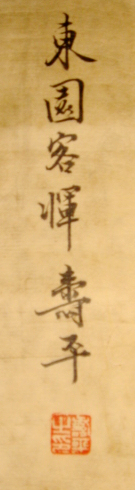 東園客惲壽平